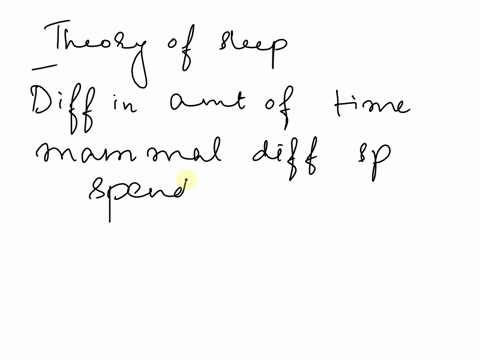 Theory of sleep
Diff in amt of time
mammal diff sp
spend